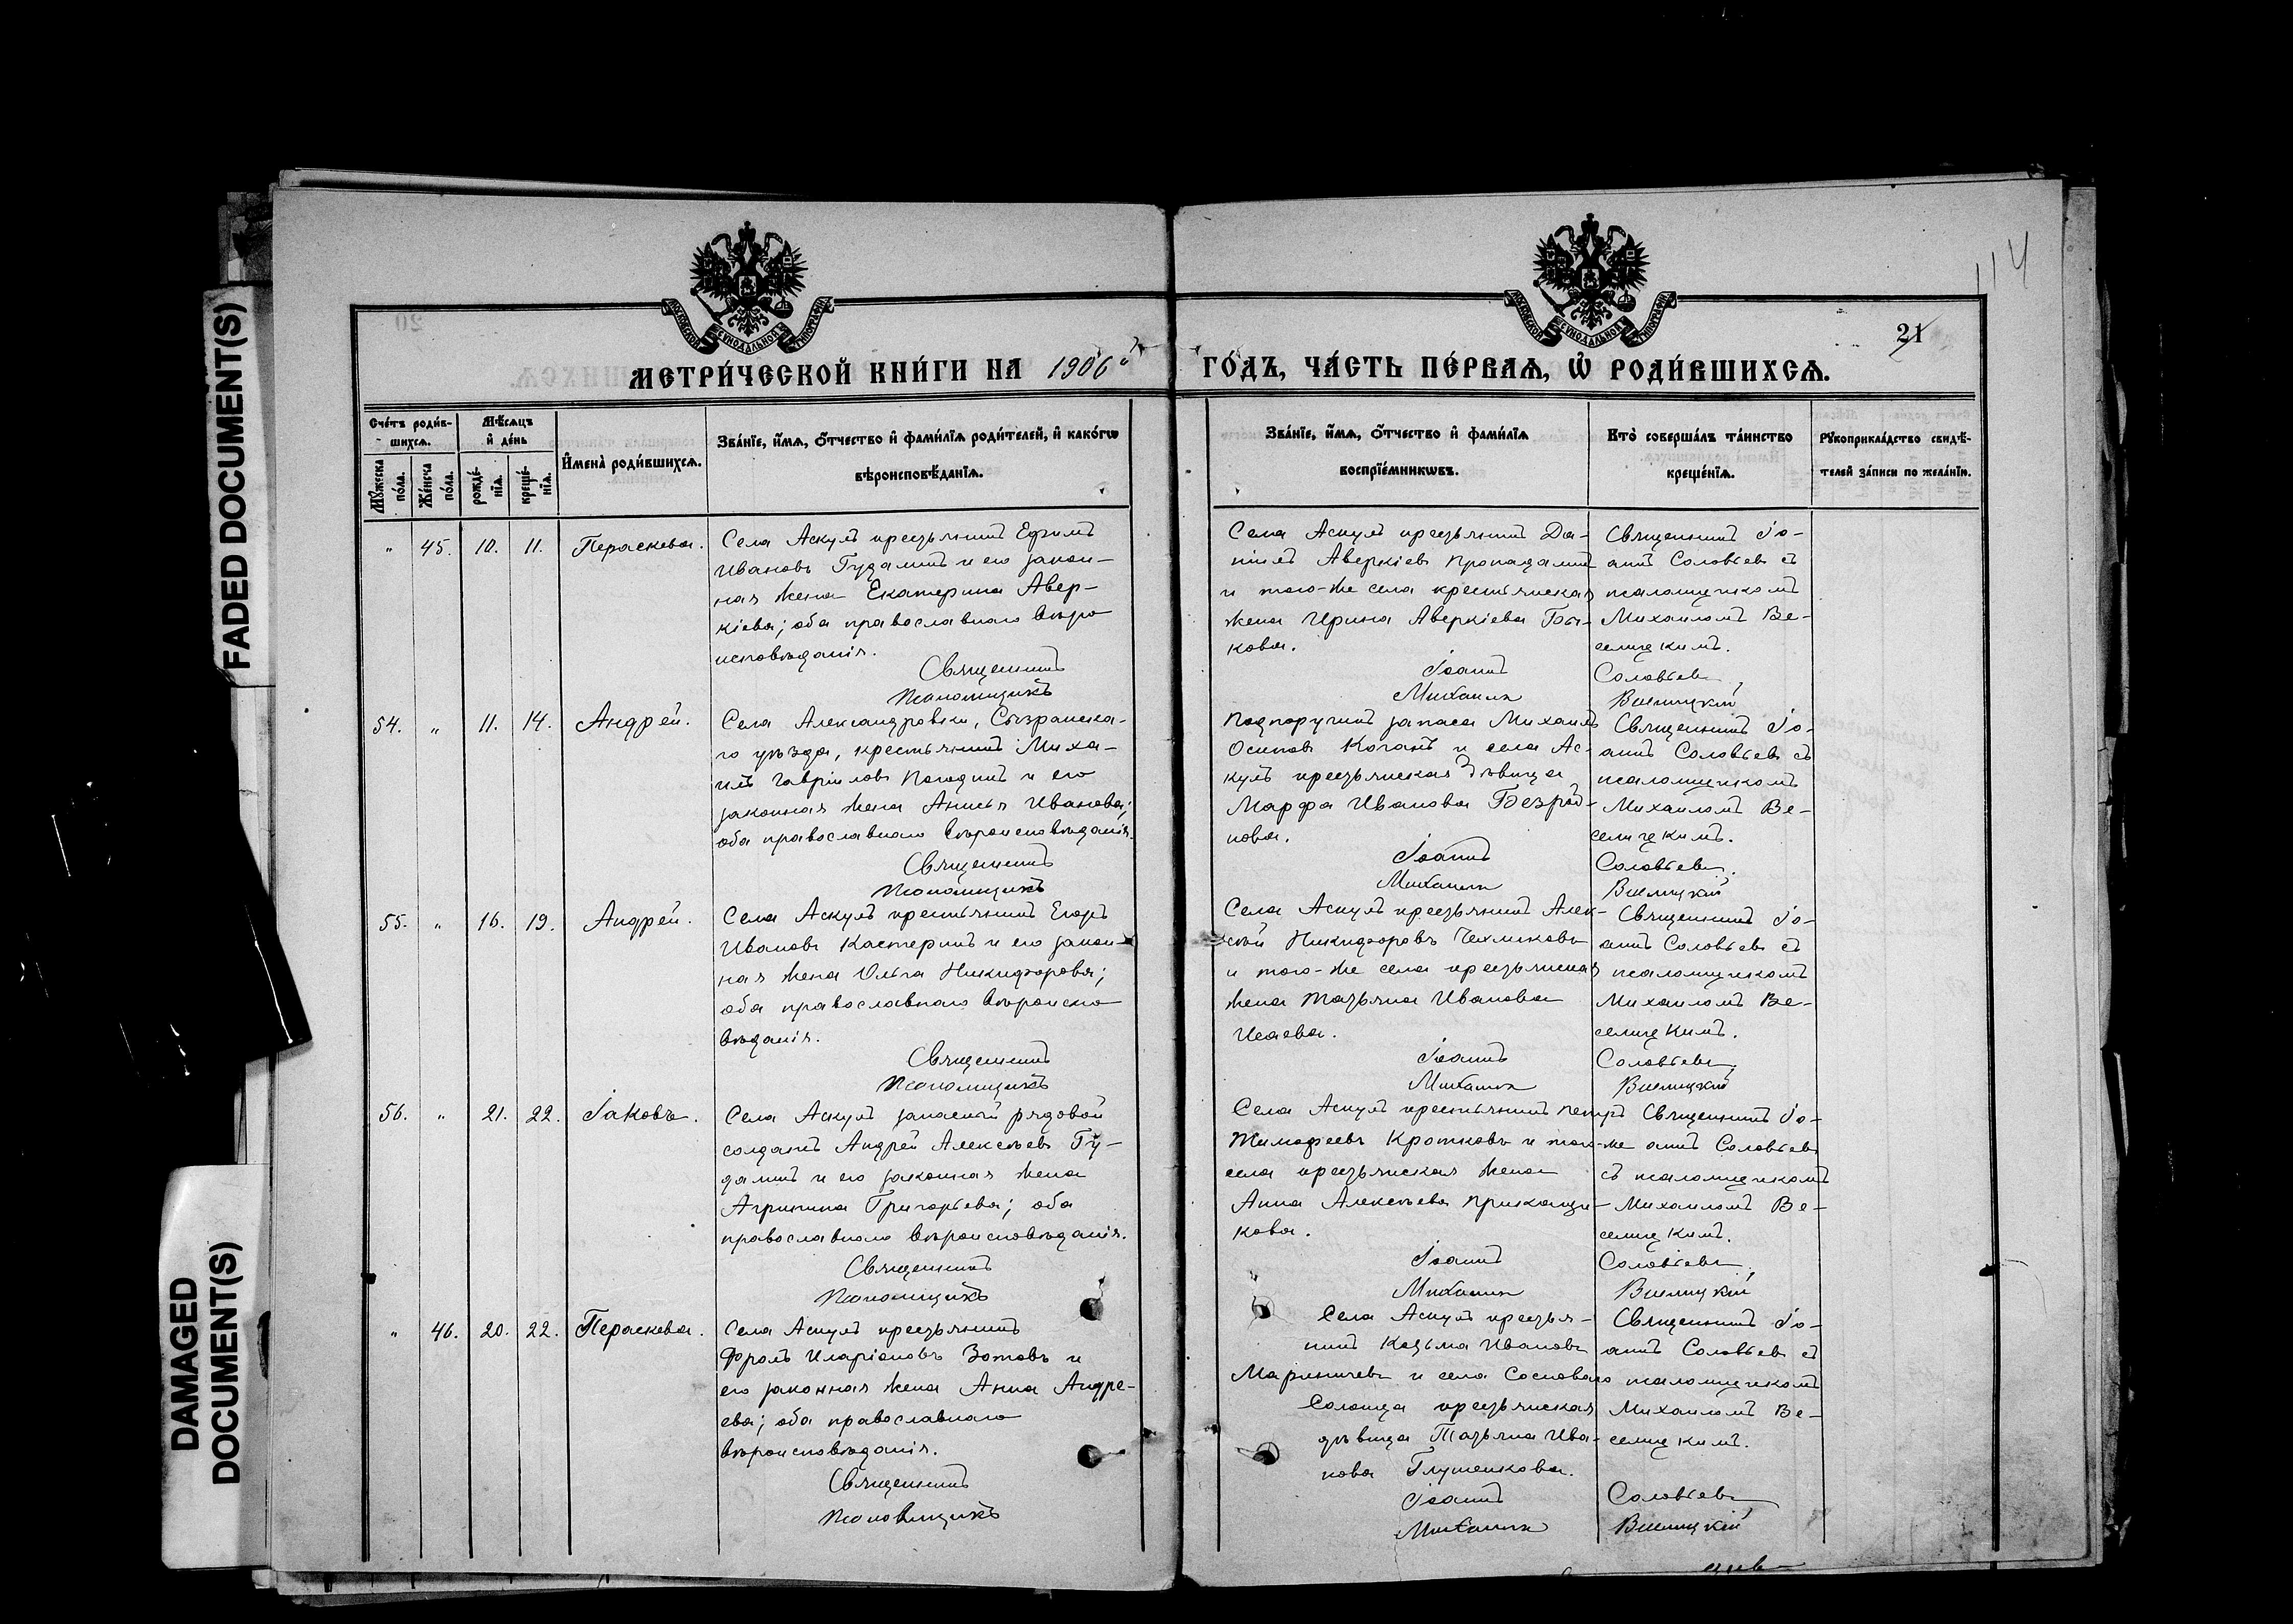 FADED DOCUMENT(S)
DAMAGED
DOCUMENT(S)
114
21
МЕТРИ́ЧЕСКОЙ КНИ́ГИ НА 1906й ГО́ДЪ, ЧА́СТЬ ПЕ́РВАѦ, Ѡ҆ РОДИ́ВШИХСѦ.
Сче́тъ роди́в-
шихсѧ.
Мѣ́сѧцъ
и҆ де́нь
Мꙋ́жеска
по́ла.
Же́нска
по́ла.
рожде́-
нїѧ.
креще́-
нїѧ.
И҆мена̀ роди́вшихсѧ.
Зва́нїе, и҆́мѧ, ѻ҆́тчество и҆ фами́лїѧ роди́телей, и҆ како́гѡ
вѣроисповѣ́данїѧ.
Зва́нїе, и҆́мѧ, ѻ҆́тчество и҆ фами́лїѧ
воспрїе́мникѡвъ.
Кто̀ соверша́лъ та́инство
креще́нїѧ.
Рꙋкоприкла́дство свидѣ́-
телей за́писи по жела́нїю.
" 45. 10. 11. Параскева.
Села Аскулъ крестьянинъ Ефимъ
Ивановъ Гудалинъ и его закон-
ная жена Екатерина Авер-
кіева; оба православнаго вѣро
исповѣданія.
Священникъ
Псаломщикъ
Села Аскулъ крестьянинъ Да-
ніилъ Аверкіевъ Пропадалинъ
и того-же села крестьянская
жена Ирина Аверкіева Бы-
кова.
Іоаннъ
Михаилъ
Священникъ Іо-
аннъ Соловьевъ съ
псаломщикомъ
Михаиломъ Ве-
селицкимъ.
Соловьевъ,
Веселицкій
54. " 11. 14. Андрей.
Села Александровки, Сызранска-
го уѣзда, крестьянинъ Миха-
илъ Гавріиловъ Погодинъ и его
законная жена Анисья Иванова;
оба православнаго вѣроисповѣданія.
Священникъ
Псаломщикъ
Подпоручикъ запаса Михаилъ
Осиповъ Коганъ и села Ас-
кулъ крестьянская дѣвица
Марфа Иванова Безрод-
нова.
Іоаннъ
Михаилъ
Священникъ Іо-
аннъ Соловьевъ съ
псаломщикомъ
Михаиломъ Ве-
селицкимъ.
Соловьевъ,
Веселицкій
55. " 16. 19. Андрей.
Села Аскулъ крестьянинъ Егоръ
Ивановъ Кастеринъ и его закон-
ная жена Ольга Никифорова;
оба православнаго вѣроиспо
вѣданія.
Священникъ
Псаломщикъ
Села Аскулъ крестьянинъ Алек-
сѣй Никифоровъ Чехмаковъ
и того-же села крестьянская
жена Татьяна Иванова
Исаева.
Іоаннъ
Михаилъ
Священникъ Іо-
аннъ Соловьевъ съ
псаломщикомъ
Михаиломъ Ве-
селицкимъ.
Соловьевъ,
Веселицкій
56. " 21. 22. Іаковъ.
Села Аскулъ запасной рядовой
солдатъ Андрей Алексѣевъ Гу-
далинъ и его законная жена
Агрипина Григорьева; оба
православнаго вѣроисповѣданія.
Священникъ
Псаломщикъ
Села Аскулъ крестьянинъ Петръ
Тимофеевъ Кротковъ и того-же
села крестьянская жена
Анна Алексѣева Приказщи-
кова.
Іоаннъ
Михаилъ
Священникъ Іо-
аннъ Соловьевъ
съ псаломщикомъ
Михаиломъ Ве-
селицкимъ.
Соловьевъ,
Веселицкій
" 46. 20. 22. Параскева.
Села Аскулъ крестьянинъ
Фролъ Иларіоновъ Зотовъ и
его законная жена Анна Андре-
ева; оба православнаго
вѣроисповѣданія.
Священникъ
Псаломщикъ
Села Аскулъ крестья-
нинъ Козьма Ивановъ
Мариничевъ и села Сосноваго
Солонца крестьянская
дѣвица Татьяна Ива-
нова Глушенкова.
Іоаннъ
Михаилъ
Священникъ Іо-
аннъ Соловьевъ съ
псаломщикомъ
Михаиломъ Ве-
селицкимъ.
Соловьевъ,
Веселицкій